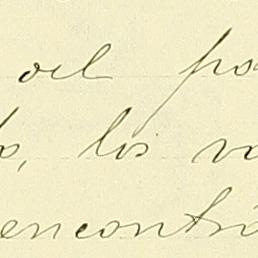 del pa
o, los va
encontra